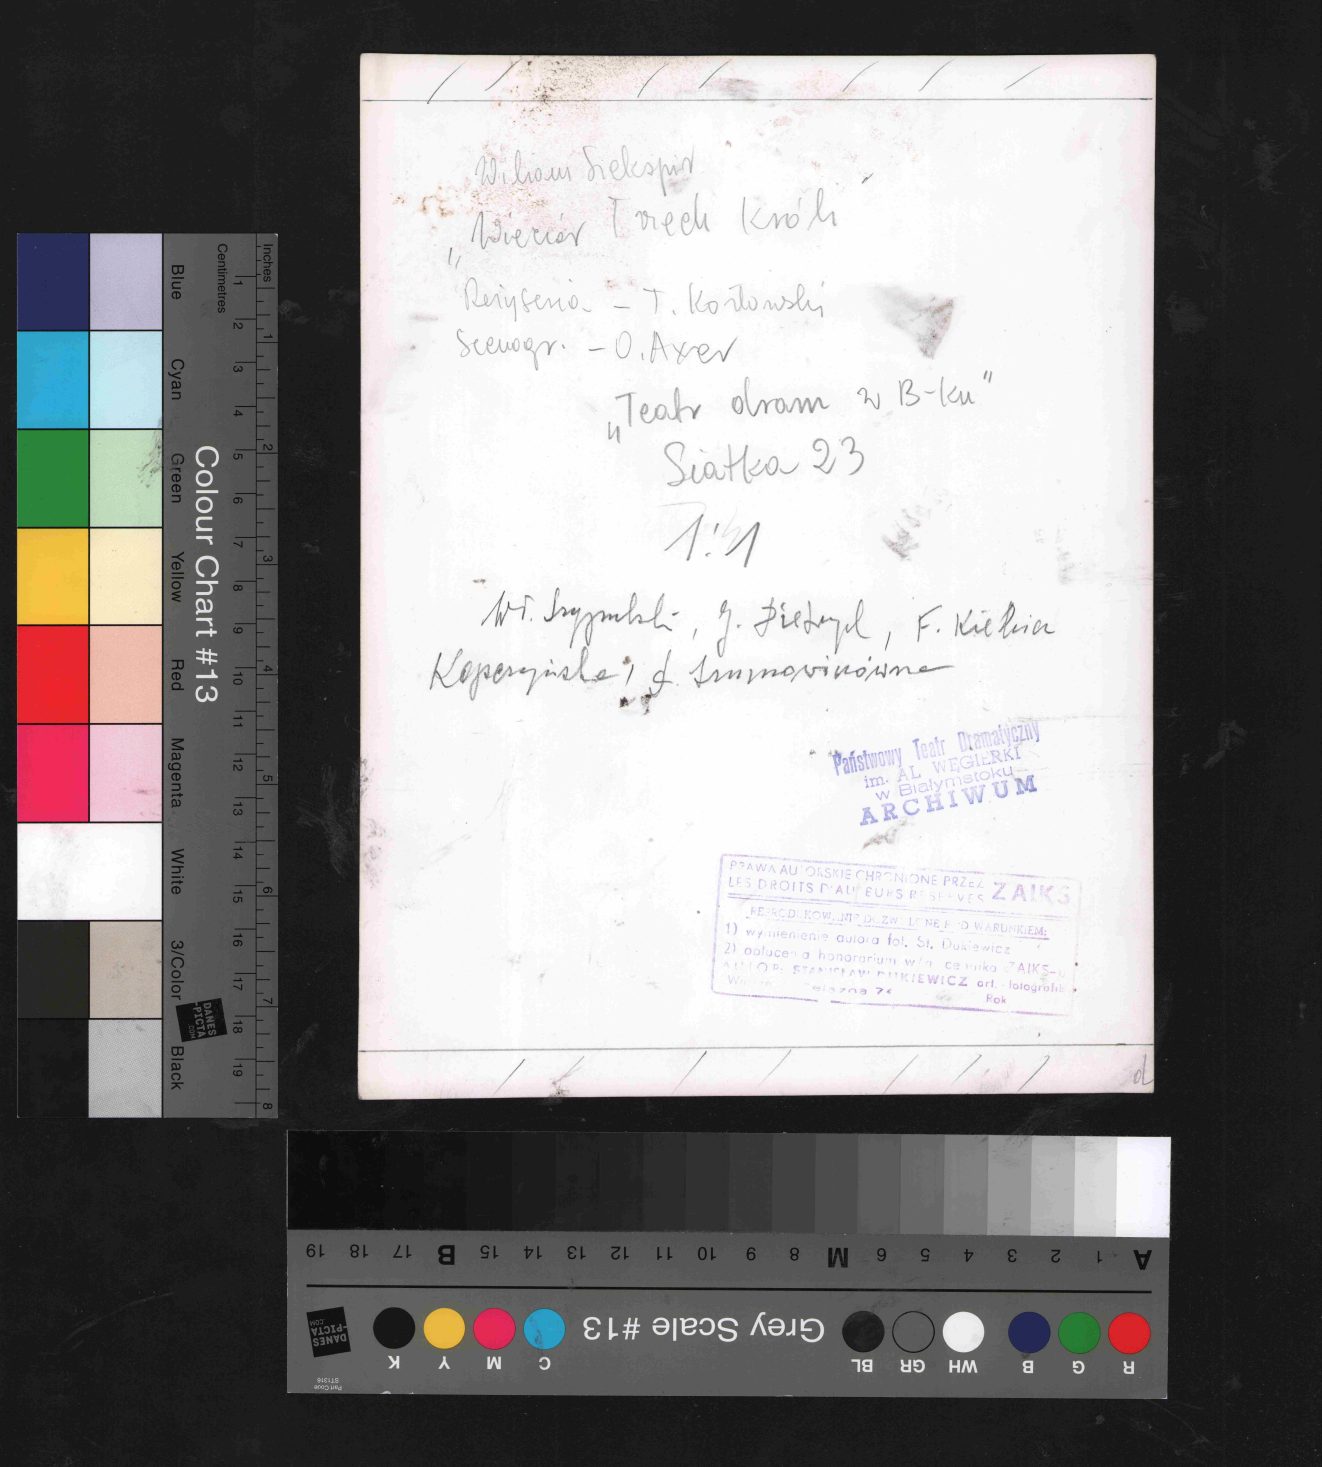 Wiliam Szekspir
„Wieczór Trzech Króli"
Reżyseria - T. Kozłowski
Scenogr. - O. Axer
„Teatr dram w B-ku"
Siatka 23
1:1
Wł. Szypulski, J. F. Kielica
Kopczyńska, Szumowiczówna
Państwowy Teatr Dramatyczny
im. AL. WĘGIERKI
w Białymstoku
ARCHIWUM
PRAWA AUTORSKIE CHRONIONE PRZEZ ZAIKS
LES DROITS D'AUTEURS RESERVES
REPRODUKOW. DOZWOLONE POD WARUNKIEM:
1) wymienienie autora fot. St. Dukiewicz
2) opłacenia honorarium cennika ZAIKS-u
AUTOR: STANISŁAW DUKIEWICZ art. fotografik
Rok
d
Inches
Centimetres
1 2 3 4 5 6 7 8 9 10 11 12 13 14 15 16 17 18 19
1 2 3 4 5 6 7 8
Blue
Cyan
Green
Yellow
Red
Magenta
White
3/Color
Black
Colour Chart #13
DANES
-PICTA
.COM
A 1 2 3 4 5 6 M 8 9 10 11 12 13 14 15 B 17 18 19
R G B WH GR BL
Grey Scale #13
C M Y K
DANES
-PICTA
.COM
Part Code
ST1316